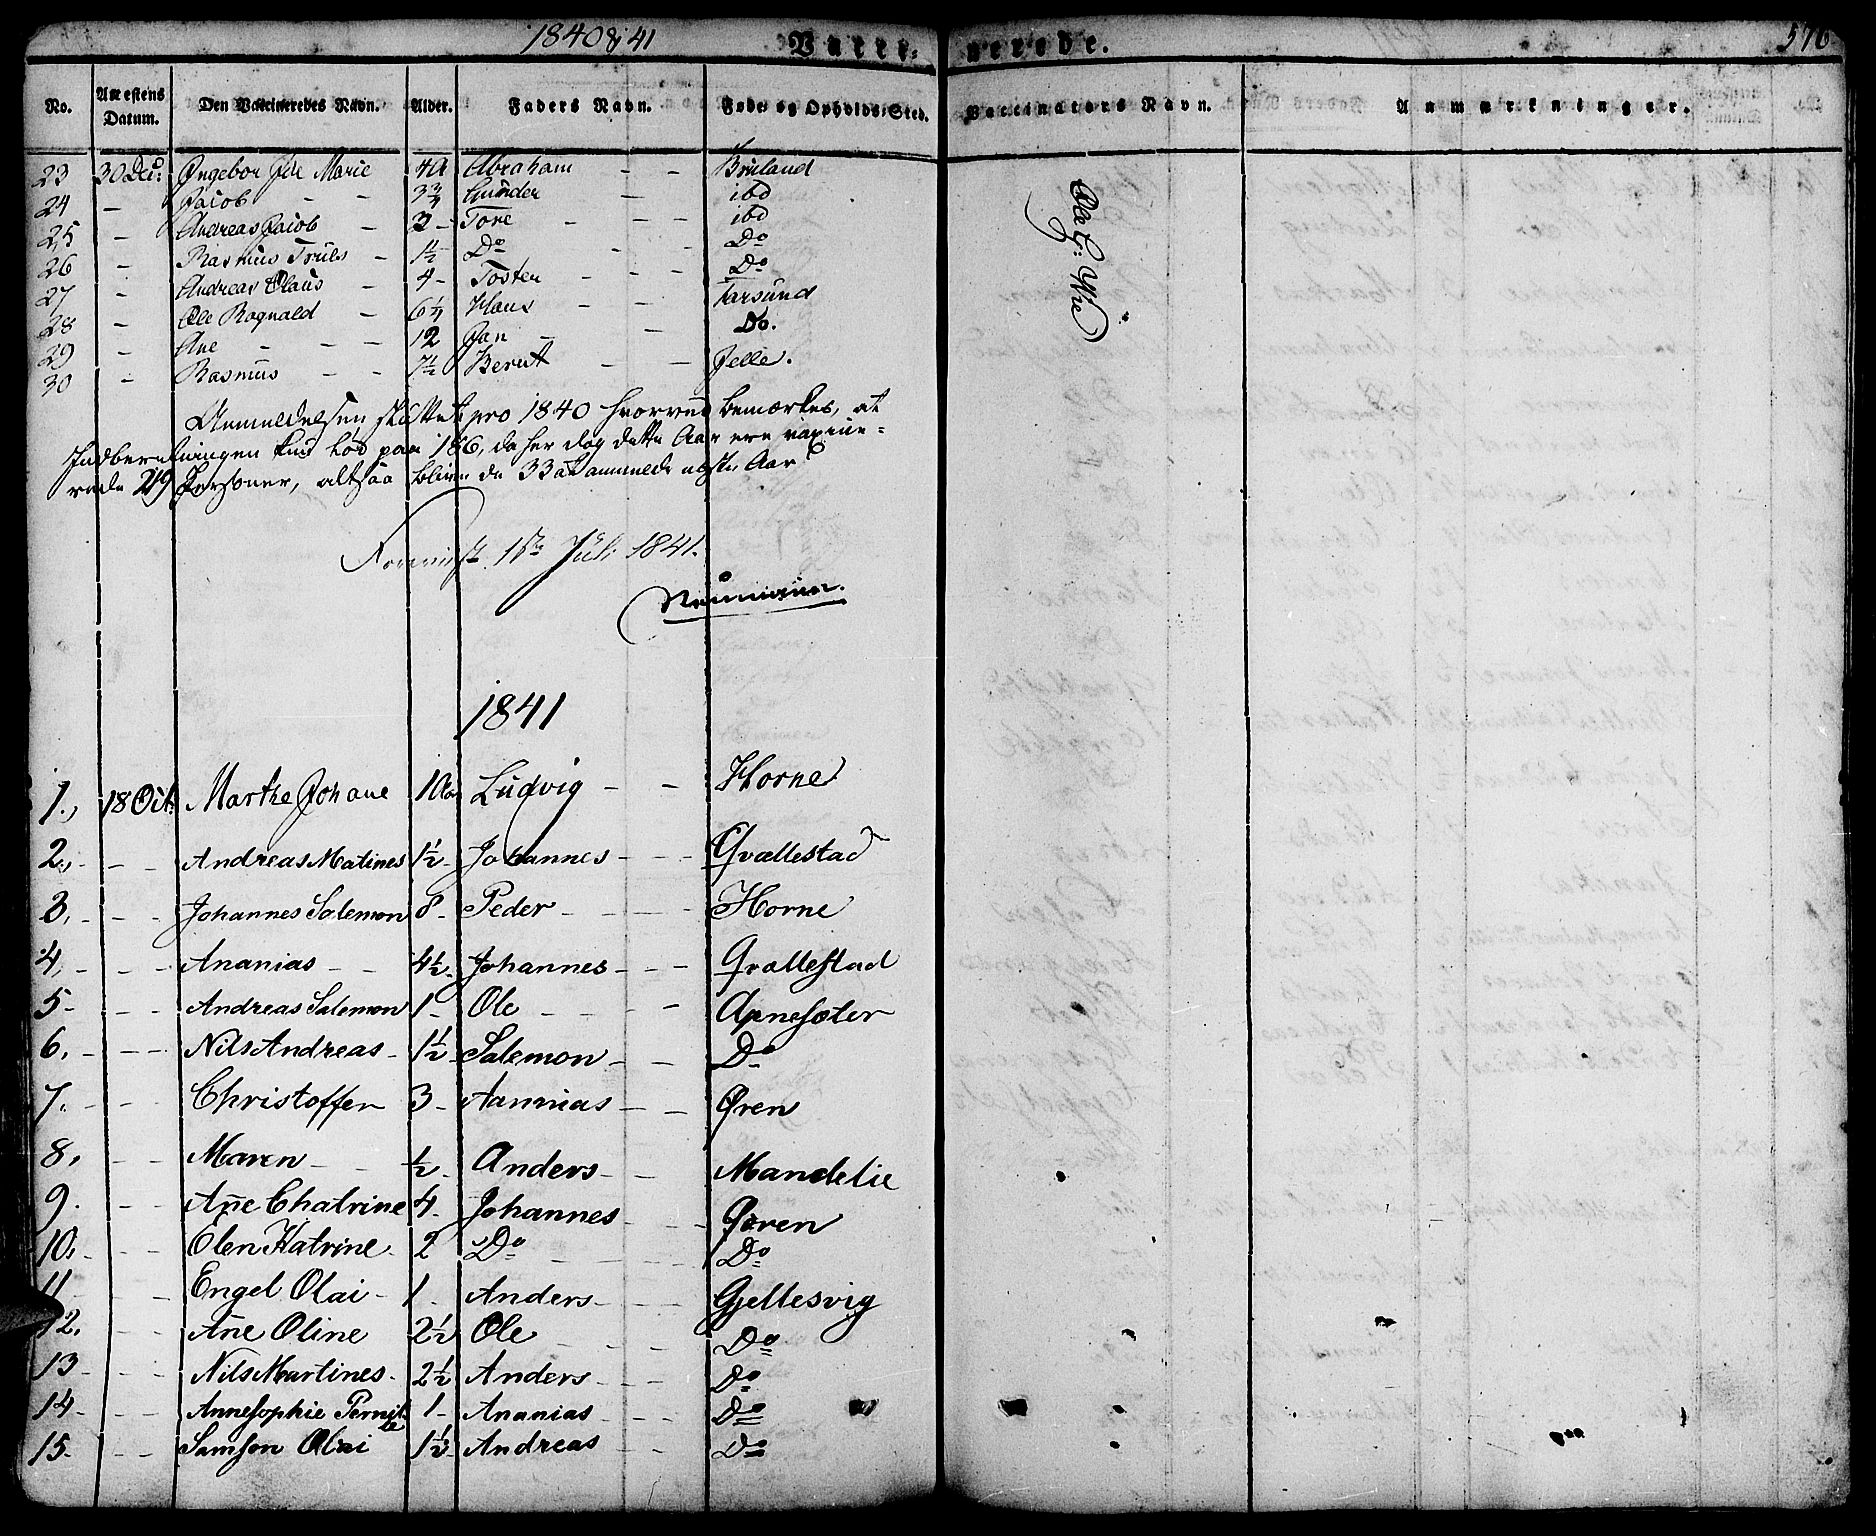 1840 & 41 Vacci- nerede. 576
No. Attestens Datum. Den Vaccineredes Navn. Alder. Faders Navn. Føde- og Opholds-Sted. Vaccinators Navn. Anmærkninger.
23 30 Dec: Ingebor Marie 4 Abraham - - Bruland
24 - Jacob - - 3 3/4 Gunder - ibd
25 - Andreas Jacob - 3 - Tore - - - ibd
26 - Rasmus Truls - 1 1/2 Do - - - Do
27 - Andreas Olaus - 4 - Tosten - - - Do
28 - Ole Rognald - 6 1/4 Hans - - Farsund
29 - Ane - - - 12 Jan - - Do.
30 - Rasmus - - 7 1/2 Berut - - Jelle.
pro 1840 hvorved bemærkes, at
Indberetningen kun lød paa 186, da her dog dette Aar ere vaxine-
rede 219 Personer, altsaa bliver de 33 at anmelde næste Aar
Juli 1841.
Neumann.
1841
1., 18 Oct. Marthe Johane 10 Ludvig - - Horne
2., - - - Andreas Matines 1 1/2 - Johannes - - - Qvallestad
3, - - - Johannes Salemon 8 - Peder - - - Horne
4, - - - Ananias - - 4 1/2 - Johannes - - - Qvallestad
5 - - - Andreas Salemon 1 - Ole - - - - Apnesæter
6. - - - - Nils Andreas - 1 1/2 - Salemon - - - Do
7. - - - Christoffer 3 - Aannias - - - Øren
8, - - Maren - - 1/2 - Anders - - Mandelie
9. - - Ane Chatrine 4 - Johannes - - - Øren
10. - - - Olen Katrine - 2 Do - - - Do
11 - - - Engel Olai - 1 - Anders - - - Gjellesvig
12. - - Ane Oline 2 1/2 Ole - - - Do
13 - - - Nils Martines - 2 1/2 Anders - - - Do
14 - - - Annesophie Pernille 1 - Ananias - - - Do
15 - - - Samson Olai 1 1/2 - Andreas - - Do